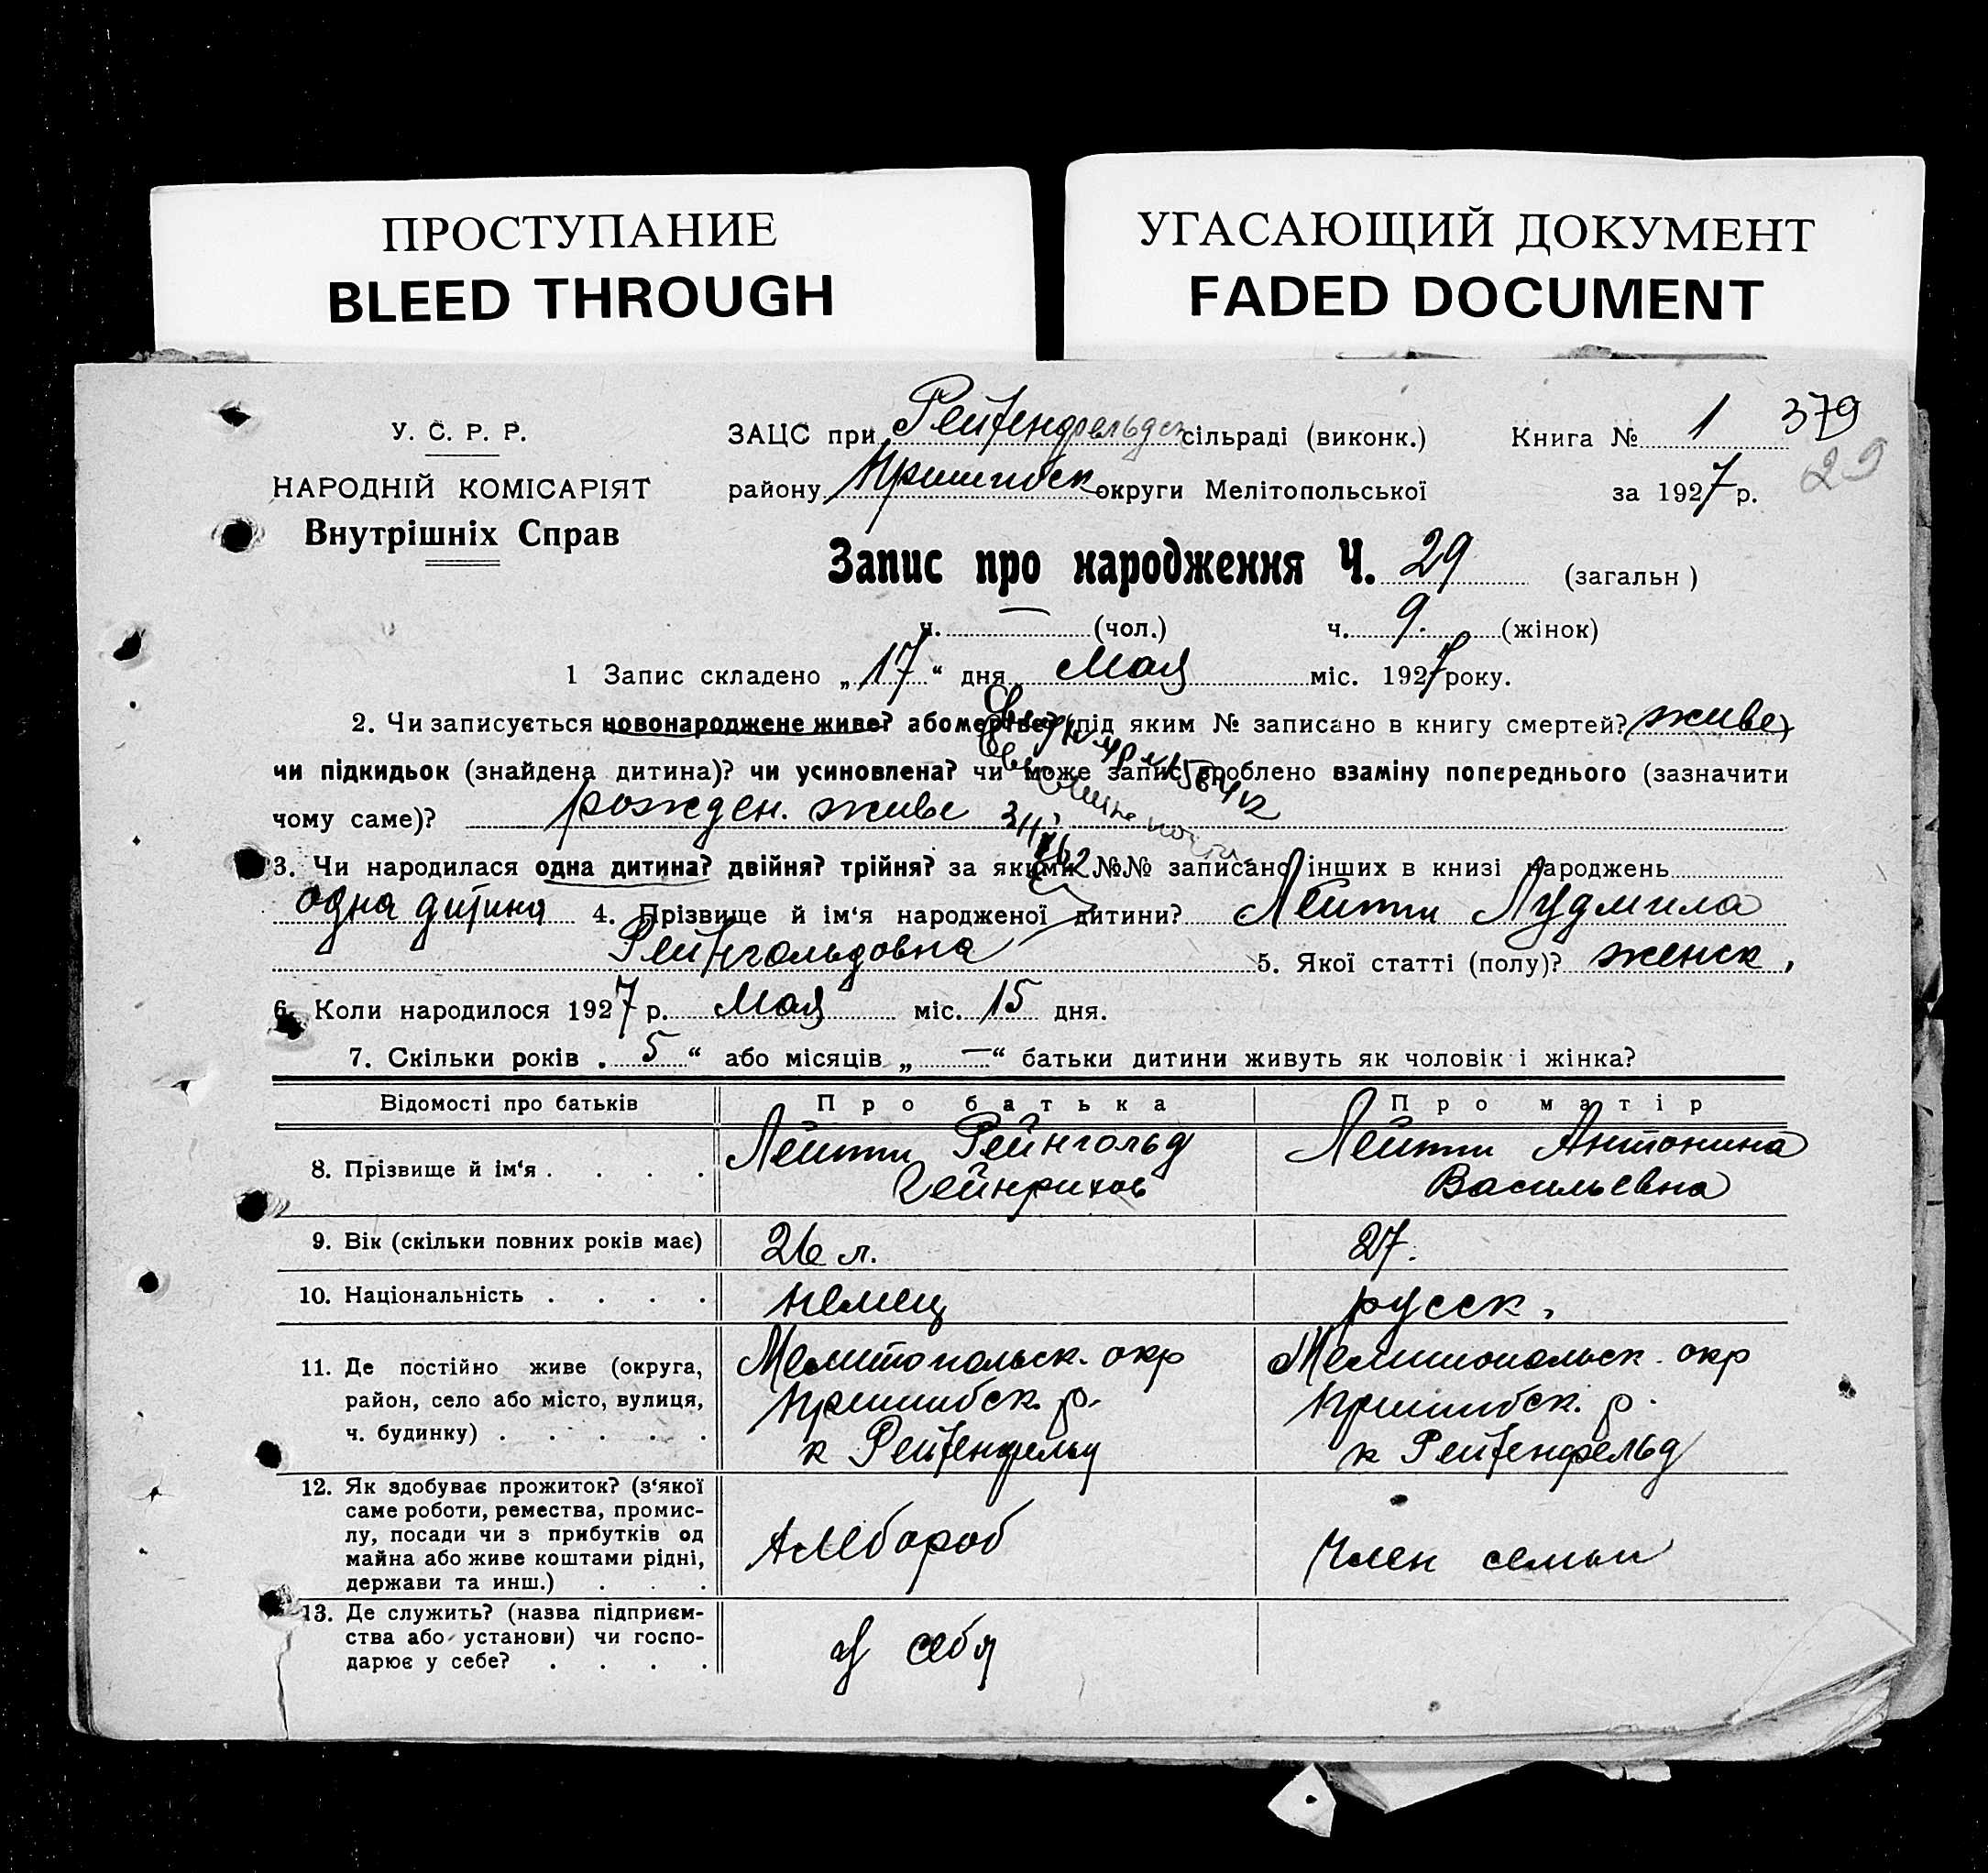 ПРОСТУПАНИЕ
BLEED THROUGH
УГАСАЮЩИЙ ДОКУМЕНТ
FADED DOCUMENT
379
29
У. С. Р. Р.
НАРОДНІЙ КОМІСАРІЯТ
Внутрішніх Справ
ЗАЦС при Рейфендфельдск сільраді (виконк.) Книга № 1
району Пришибск округи Мелітопольської за 1927 р.
Запис про народження Ч. 29 (загальн)
ч. — (чол.) ч. 9. (жінок)
1 Запис складено „17“ дня Мая міс. 1927 року.
2. Чи записується новонароджене живе? або мертве? (під яким № записано в книгу смертей? живе)
чи підкидьок (знайдена дитина)? чи усиновлена? чи може запис зроблено взаміну попереднього (зазначити
чому саме)? рожден. живе
3. Чи народилася одна дитина? двійня? трійня? за якими №№ записано інших в книзі народжень
одна дитина 4. Прізвище й ім‘я народженої дитини? Лейтти Лудмила
Рейнгольдовна 5. Якої статті (полу)? женск.
6. Коли народилося 1927 р. Мая міс. 15 дня.
7. Скільки років „5“ або місяців „—“ батьки дитини живуть як чоловік і жінка?
Відомості про батьків Про батька Про матір
8. Прізвище й ім‘я . . . . Лейтти Рейнгольд Лейтти Антонина
Гейнрихов Васильевна
9. Вік (скільки повних років має) 26 л. 27.
10. Національність . . . . немец русск.
11. Де постійно живе (округа, Мелитопольск. окр Мелитопольск. окр
район, село або місто, вулиця, Пришибск. р. Пришибск. р.
ч. будинку) . . . . . к Рейфенфельд к Рейфенфельд
12. Як здобуває прожиток? (з‘якої
саме роботи, ремества, промис-
лу, посади чи з прибутків од
майна або живе коштами рідні, хлебороб Член семьи
держави та инш.) . . .
13. Де служить? (назва підприєм-
ства або установи) чи госпо- у себя
дарює у себе? . . . .